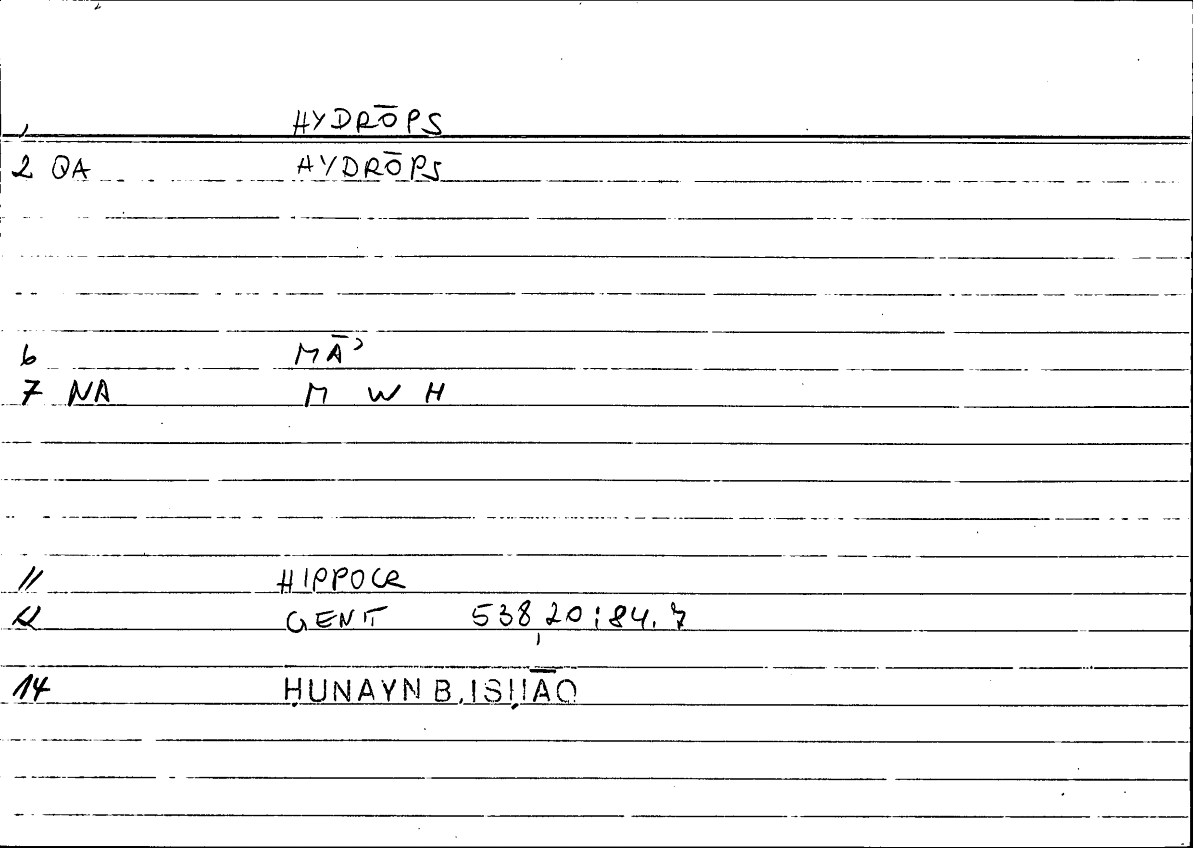 1 HYDRŌPS
2 QA HYDRŌPS
6 MĀʾ
7 NA M W H
11 HIPPOCR
12 GENIT 538,20;84.7
14 ḤUNAYN B. ISḤĀQ